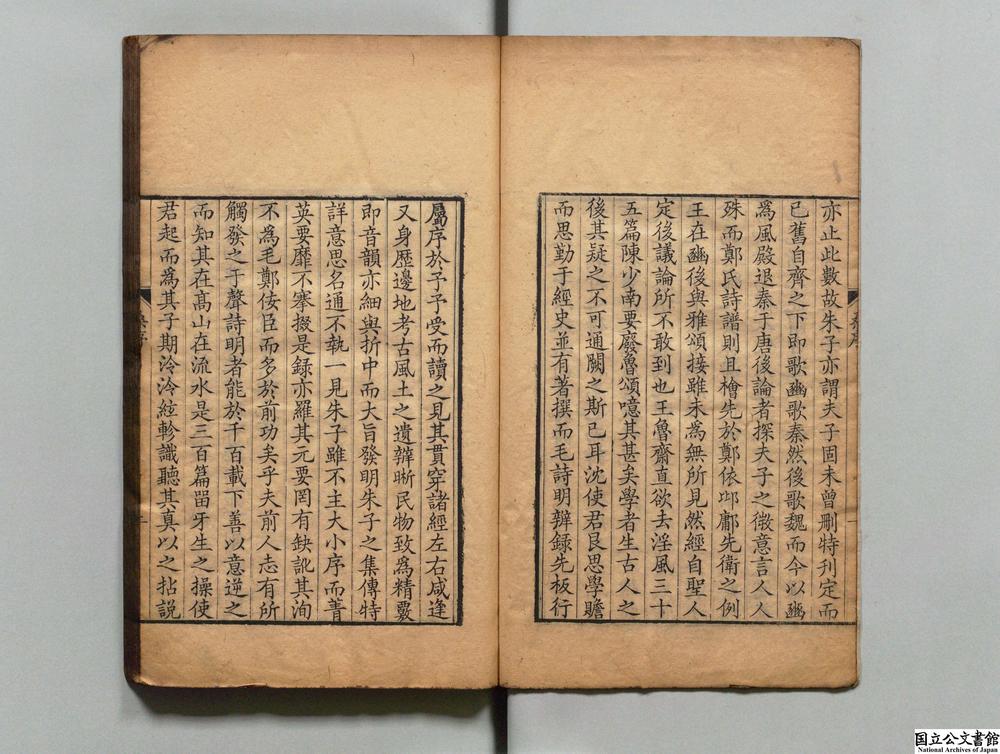 亦止此數故朱子亦謂夫子固未曾刪特刊定而
已舊自齊之下即歌豳歌秦然後歌魏而今以豳
為風殿退秦于唐後論者探夫子之微意言人人
殊而鄭氏詩譜則且檜先於鄭依邶鄘先衛之例
王在豳後與雅頌接雖未為無所見然經自聖人
定後議論所不敢到也王魯齋直欲去淫風三十
五篇陳少南要廢魯頌噫其甚矣學者生古人之
後其疑之不可通闕之斯已耳沈使君艮思學贍
而思勤于經史並有著撰而毛詩明辨録先板行
屬序於予予受而讀之見其貫穿諸經左右咸逢
又身歷邊地考古風土之遺辨晰民物致為精覈
即音韻亦細與折中而大旨發明朱子之集傳特
詳意思名通不執一見朱子雖不主大小序而菁
英要靡不搴掇是録亦羅其元要罔有缺訛其洵
不為毛鄭佞臣而多於前功矣乎夫前人志有所
觸發之于聲詩明者能於千百載下善以意逆之
而知其在髙山在流水是三百篇畱牙生之操使
君起而為其子期泠泠絃軫識聽其真以之拈説
國立公文書館
National Archives of Japan